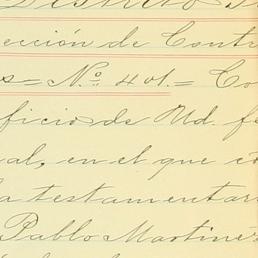 Distrito
ección de Contr
s = No. 401. = Co
ficio de Ud. fe
al, en el que co
la testamentar
Pablo Martinez